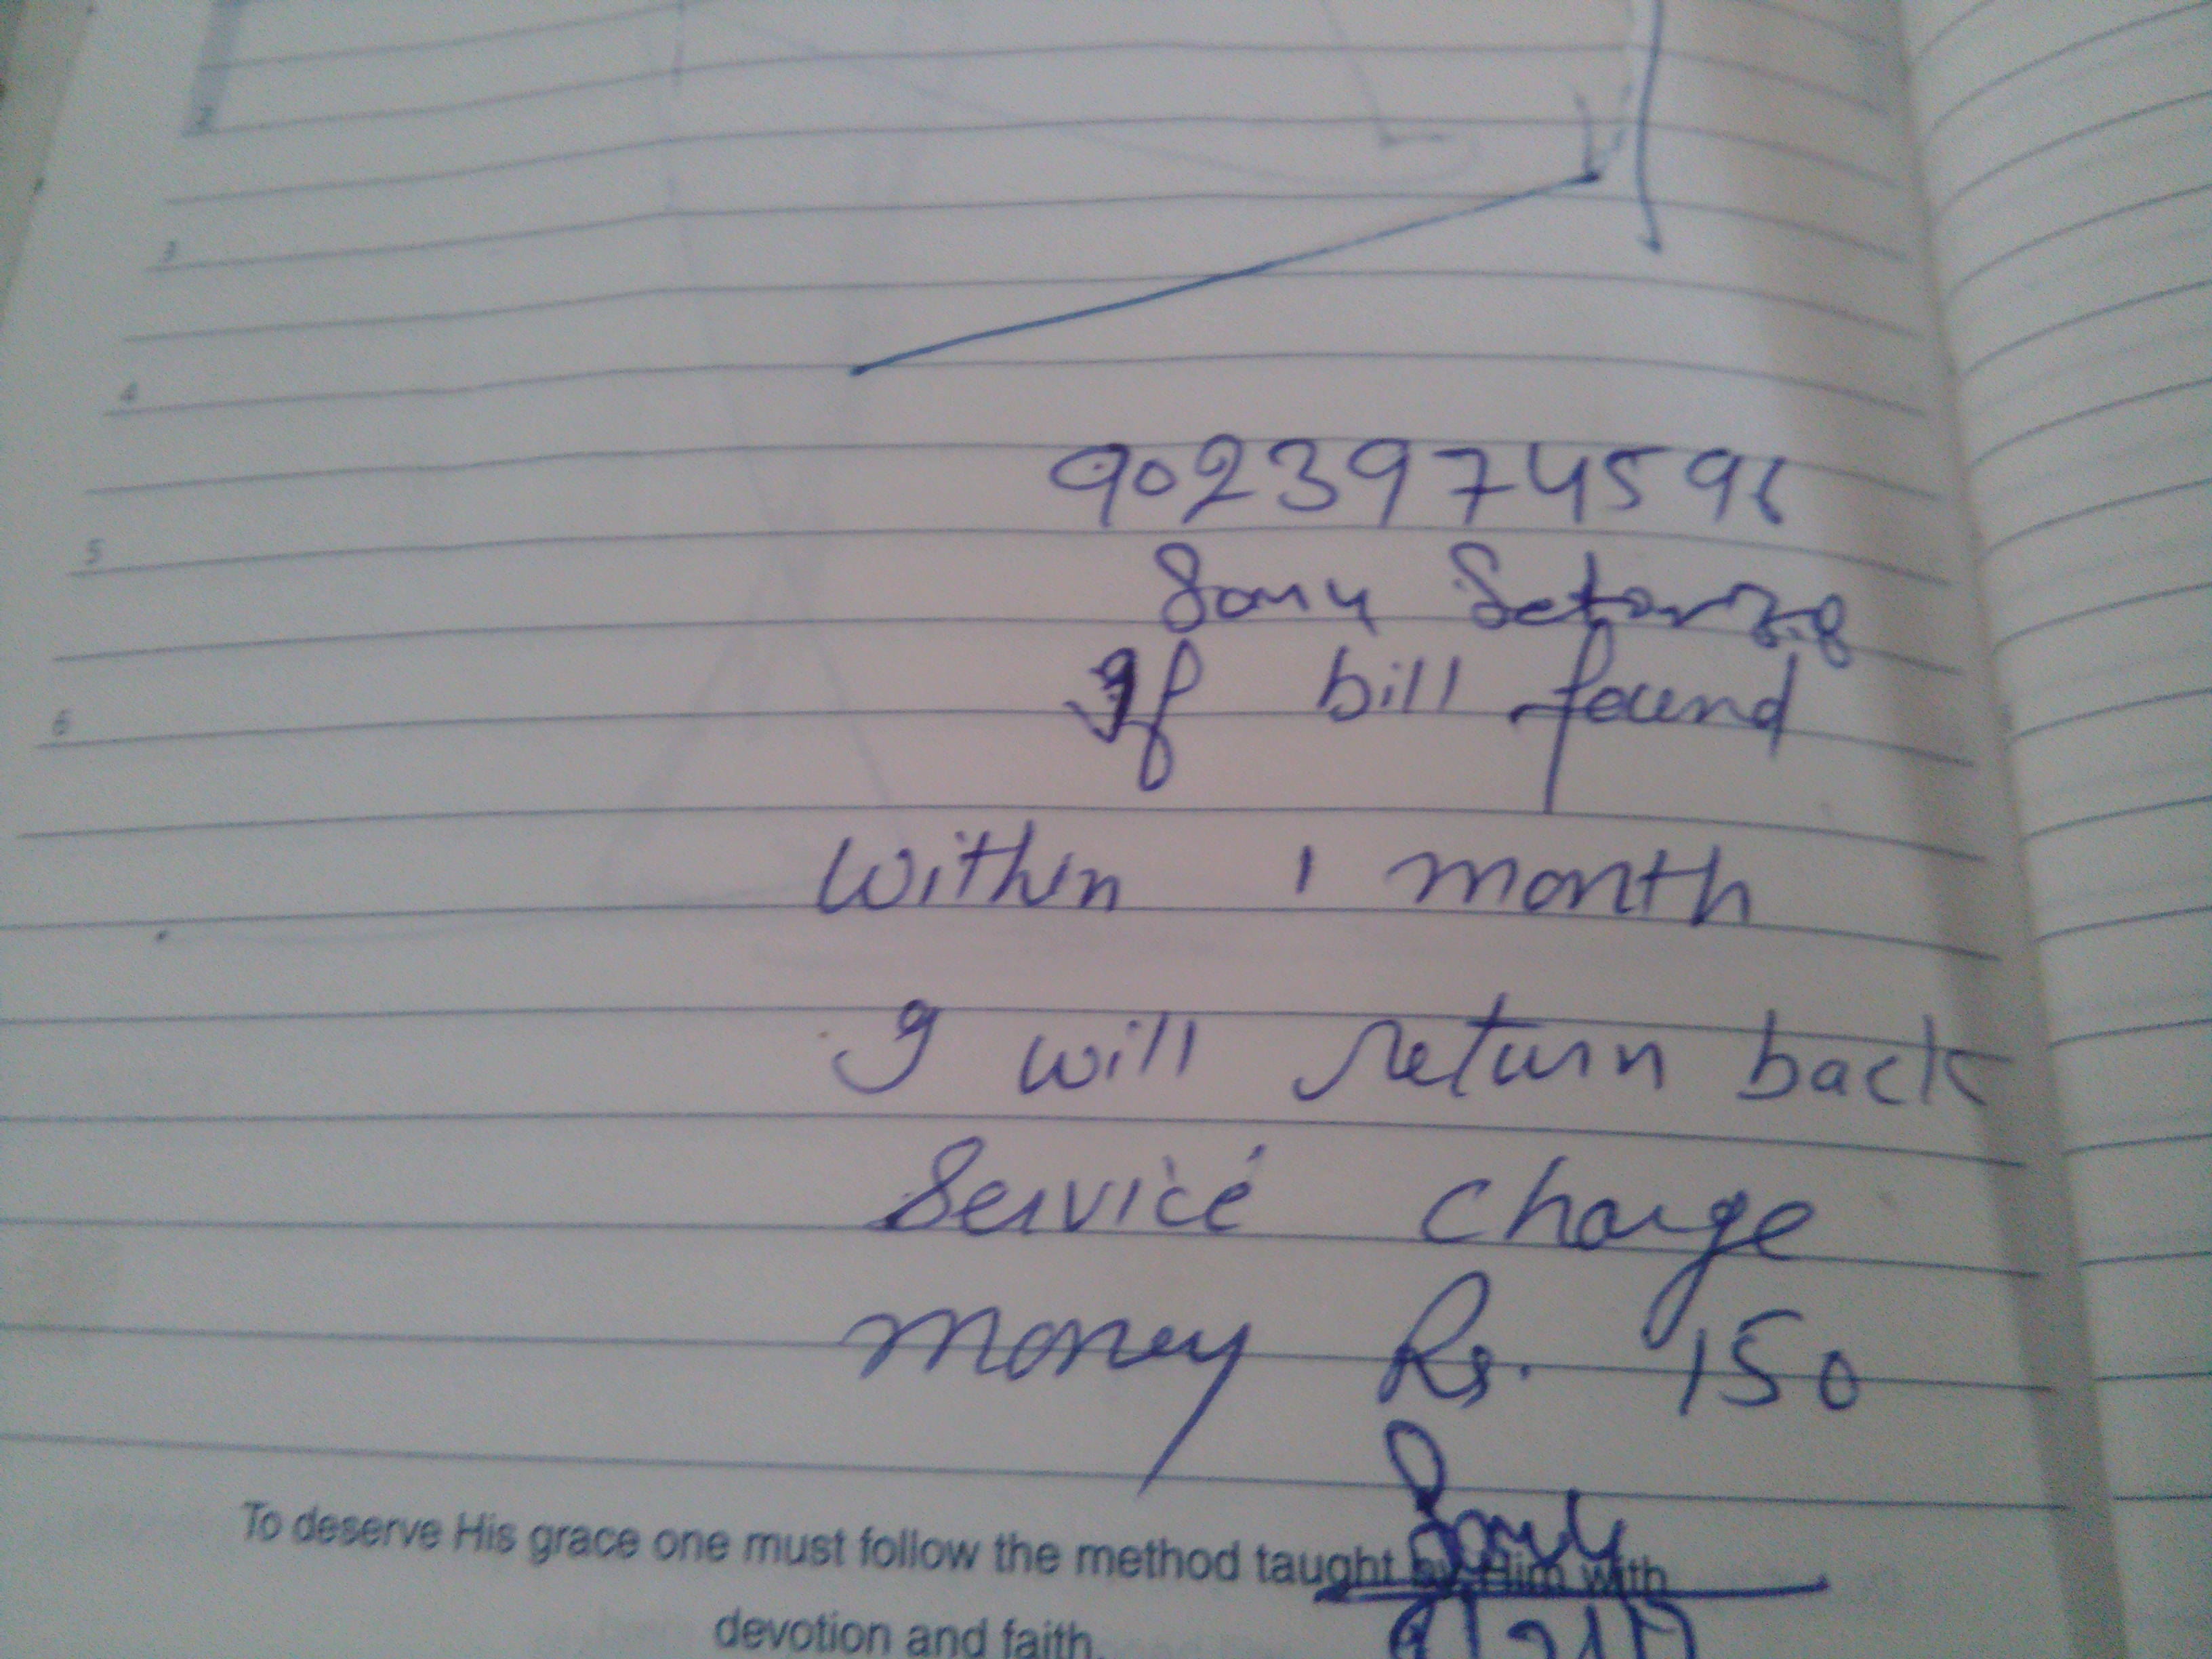 2
3
4
5
6
9023974596
Sonu
If bill found
Within 1 month
I will return back
Service charge
money Rs. 150
Sonu
To deserve His grace one must follow the method taught by Him with
devotion and faith.